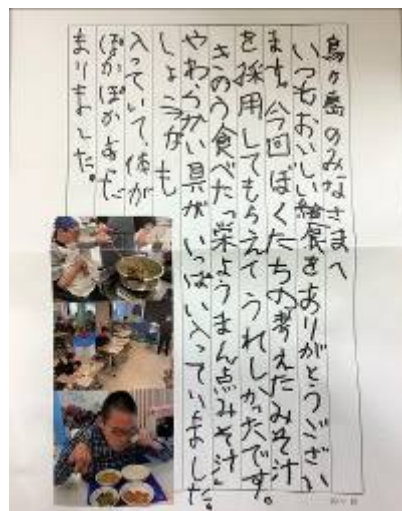 鳥ヶ島のみなさまへ
いつもおいしい給食をありがとうござい
ます。今回ぼくたちの考えたみそ汁
を採用してもらえてうれしかったです。
きのう食べた「栄ようまん点みそ汁」
やわらかい具がいっぱい入っていました。
しょうがも
入っていて、体が
ぽかぽかあった
まりました。